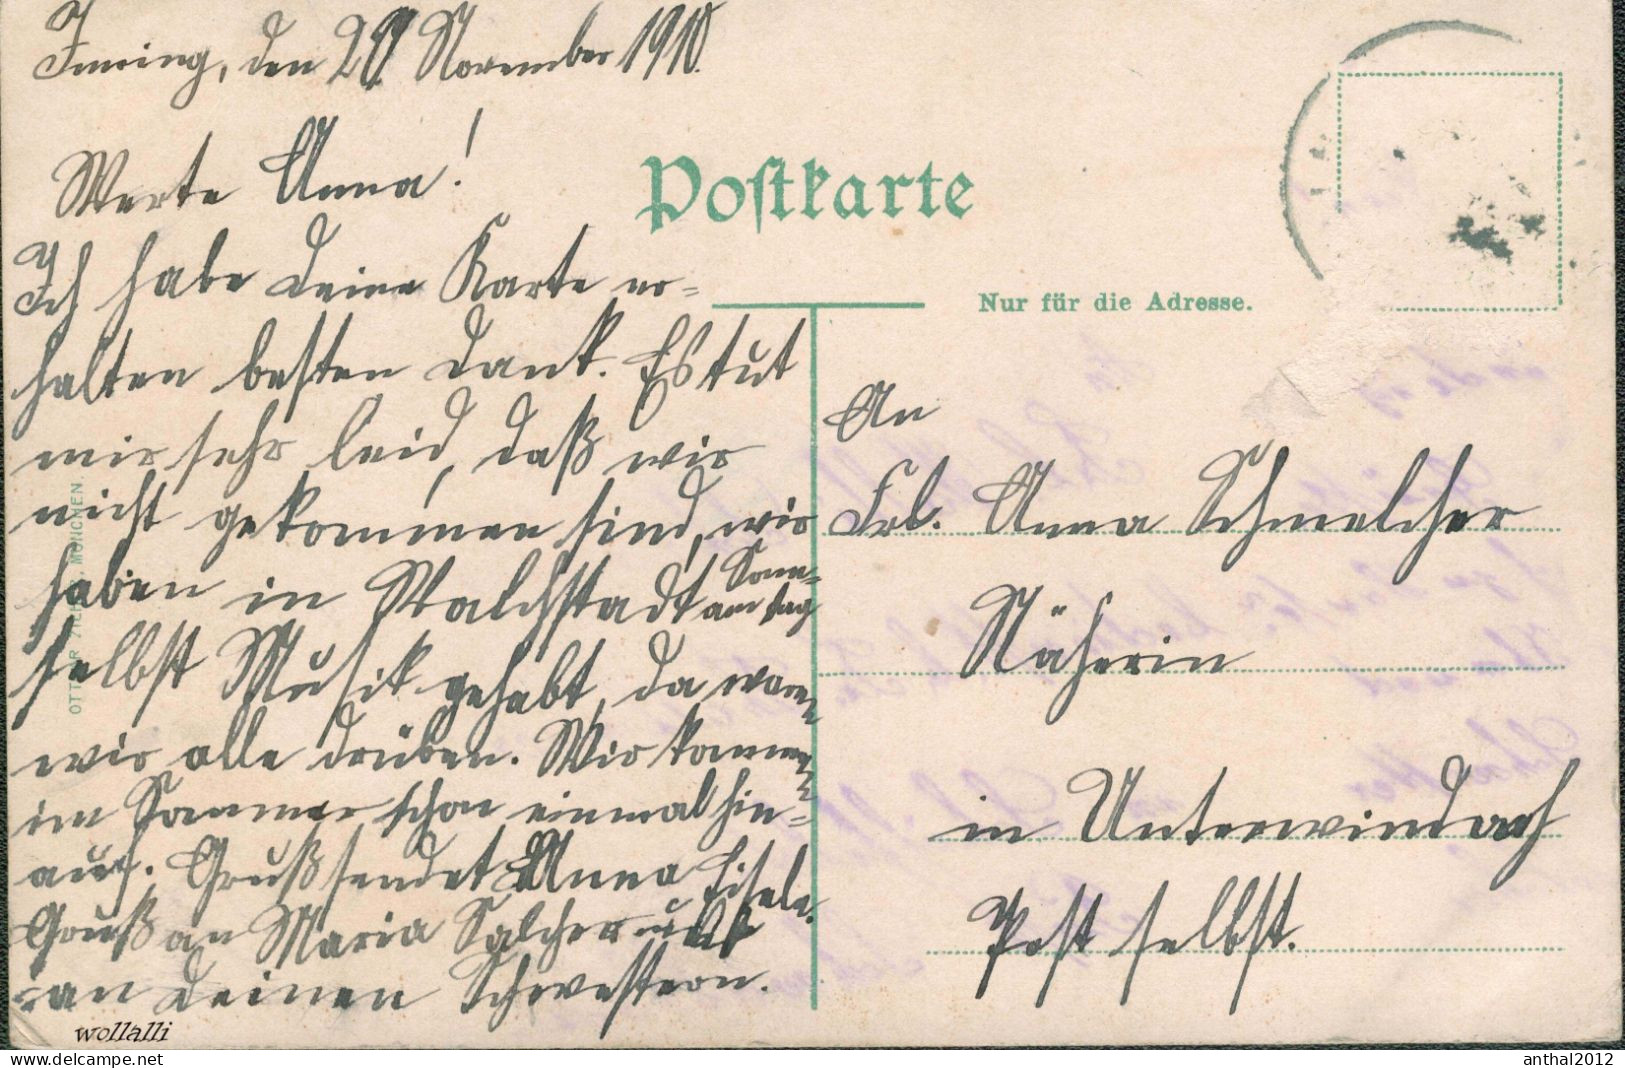 Inning, den 29. November 1910.
Werte Anna!
Ich habe deine Karte er=
halten besten Dank. Es tut
mir sehr leid, daß wir
nicht gekommen sind, wir
haben in Walchstadt am Sonn=
tag
selbst Musik gehabt, da waren
wir alle drüben. Wir kommen
im Sommer schon einmal hin=
auf. Gruß sendet Anna Eisele.
Gruß an Maria Salcher und
an deinen Schwestern.
Postkarte
Nur für die Adresse.
An
Frl. Anna Schmelcher
Näherin
in Unterwindach
Post selbst.
MÜNCHEN.
wollalli
anthal2012